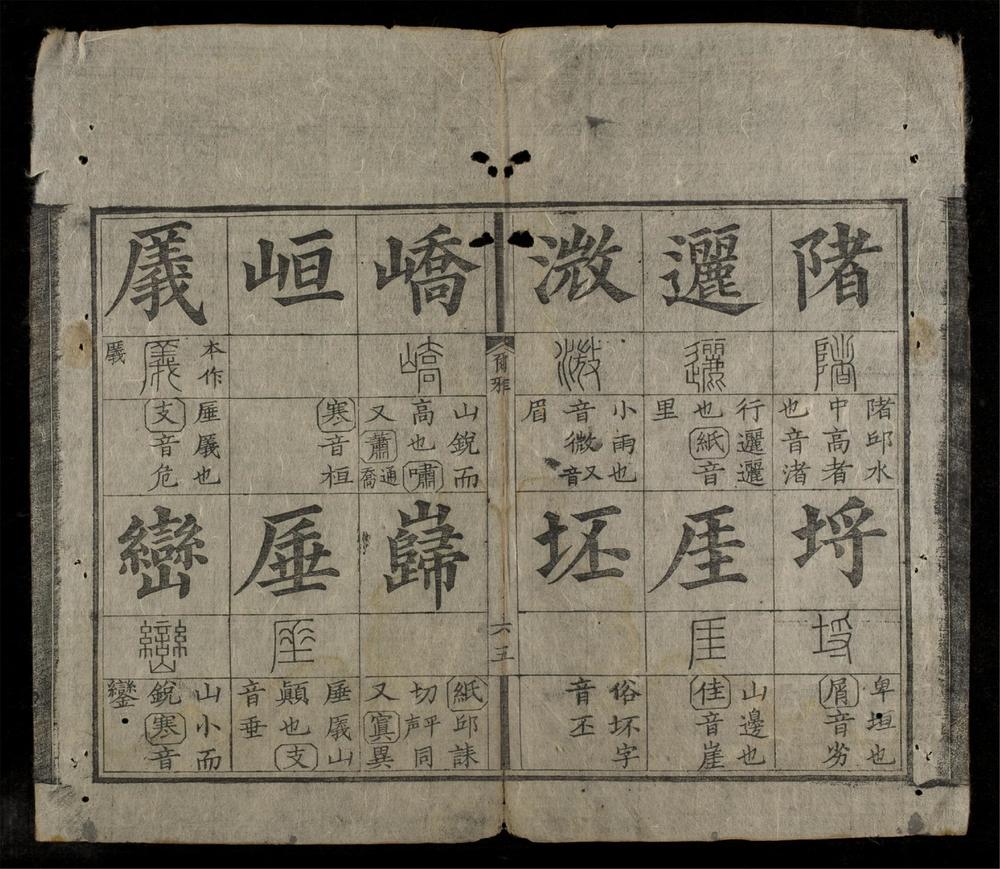 陼
陼邱水
中高者
也音渚
埒
卑垣也
屑音劣
邐
行邐邐
也紙音
里
厓
山邊也
佳音崖
溦
小雨也
音微又音
眉
坯
俗坏字
音丕
爾雅
六五
嶠
山銳而
高也嘯
又蕭通喬
巋
紙邱誄
切平聲同
又寘異
峘
寒音桓
厜
厜㕒山
顛也支
音垂
㕒
本作
厜㕒也
支音危
巒
山小而
銳寒音
鑾